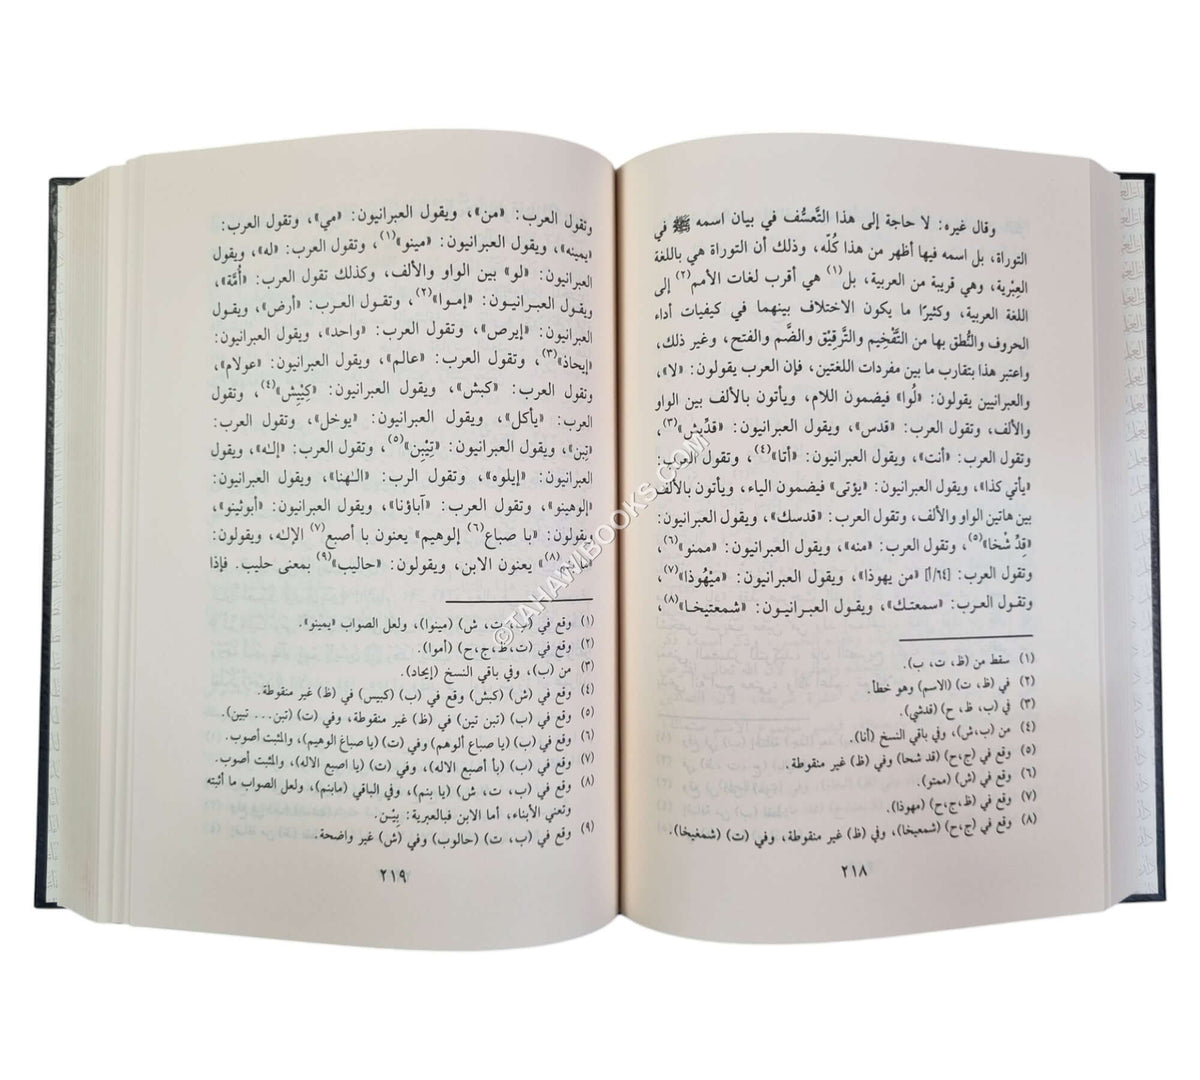 وقال غيره: لا حاجة إلى هذا التَّعسُّف في بيان اسمه ﷺ في
التوراة، بل اسمه فيها أظهر من هذا كُلّه، وذلك أن التوراة هي باللغة
العِبْرية، وهي قريبة من العربية، بل(١) هي أقرب لغات الأمم(٢) إلى
اللغة العربية، وكثيرًا ما يكون الاختلاف بينهما في كيفيات أداء
الحروف والنُّطق بها من التَّفْخِيم والتَّرقِيْق والضَّم والفتح، وغير ذلك،
واعتبر هذا بتقارب ما بين مفردات اللغتين، فإن العرب يقولون: «لا»،
والعبرانيين يقولون: «لُوا» فيضمون اللام، ويأتون بالألف بين الواو
والألف، وتقول العرب: «قدس»، ويقول العبرانيون: «قدِّيش»(٣)،
وتقول العرب: «أنت»، ويقول العبرانيون: «أتا»(٤)، وتقول العرب:
«يأتي كذا»، ويقول العبرانيون: «يؤتى» فيضمون الياء، ويأتون بالألف
بين هاتين الواو والألف، وتقول العرب: «قدسك»، ويقول العبرانيون:
«قدِّ شْخا»(٥)، وتقول العرب: «منه»، ويقول العبرانيون: «ممنو»(٦)،
وتقول العرب: [٦٤/أ] «من يهوذا»، ويقول العبرانيون: «ميْهُوذا»(٧)،
وتقول العرب: «سمعتك»، ويقول العبرانيون: «شمعتيخا»(٨)،
(١) سقط من (ظ، ت، ب).
(٢) في (ظ، ت) (الاسم) وهو خطأ.
(٣) في (ب، ظ، ح) (قدشي).
(٤) من (ب،ش)، وفي باقي النسخ (أنا).
(٥) وقع في (ج،ح) (قد شحا) وفي (ظ) غير منقوطة.
(٦) وقع في (ش) (ممتو).
(٧) وقع في (ظ،ج،ح) (مهوذا).
(٨) وقع في (ج،ح) (شمعيخا)، وفي (ظ) غير منقوطة، وفي (ت) (شمغيخا).
٢١٨
وتقول العرب: «من»، ويقول العبرانيون: «مي»، وتقول العرب:
«يمينه»، ويقول العبرانيون: «مينو»(١)، وتقول العرب: «له»، ويقول
العبرانيون: «لو» بين الواو والألف، وكذلك تقول العرب: «أُمَّة»،
ويقول العبرانيون: «إموا»(٢)، وتقول العرب: «أرض»، ويقول
العبرانيون: «إيرص»، وتقول العرب: «واحد»، ويقول العبرانيون:
«إيحاذ»(٣)، وتقول العرب: «عالم»، ويقول العبرانيون: «عولام»،
وتقول العرب: «كبش»، ويقول العبرانيون: «كِيِيش»(٤)، وتقول
العرب: «يأكل»، ويقول العبرانيون: «يوخل»، وتقول العرب:
«تِبن»، ويقول العبرانيون: «تِيْبِن»(٥)، وتقول العرب: «إلٰه»، ويقول
العبرانيون: «إيلوه»، وتقول الرب: «إلٰهنا»، ويقول العبرانيون:
«إلوهينو»، وتقول العرب: «آباؤنا»، ويقول العبرانيون: «أبوثينو»،
ويقولون: «با صباع(٦) إلوهيم» يعنون با أصبع(٧) الإله، ويقولون:
(٨) يعنون الابن، ويقولون: «حاليب»(٩) بمعنى حليب. فإذا
(١) وقع في (ب، ت، ش) (مينوا)، ولعل الصواب «يمينو».
(٢) وقع في (ت،ظ،ج،ح) (أموا).
(٣) من (ب)، وفي باقي النسخ (إيحاد).
(٤) وقع في (ش) (كبش) وقع في (ب) (كبيس) في (ظ) غير منقوطة.
(٥) وقع في (ب) (تبن تين) في (ظ) غير منقوطة، وفي (ت) (تبن... تبين).
(٦) وقع في (ب) (يا صباع ألوهم) وفي (ت) (يا صباغ الوهيم)، والمثبت أصوب.
(٧) وقع في (ب) (بأ أصبع الاله)، وفي (ت) (يا اصبع الاله)، والمثبت أصوب.
(٨) وقع في (ب، ت، ش) (يا بنم)، وفي الباقي (مابنم)، ولعل الصواب ما أثبته
وتعني الأبناء، أما الابن فبالعبرية: بِيْن.
(٩) وقع في (ب، ت) (حالوب) وفي (ش) غير واضحة.
٢١٩
©TAHAWIBOOKS.COM